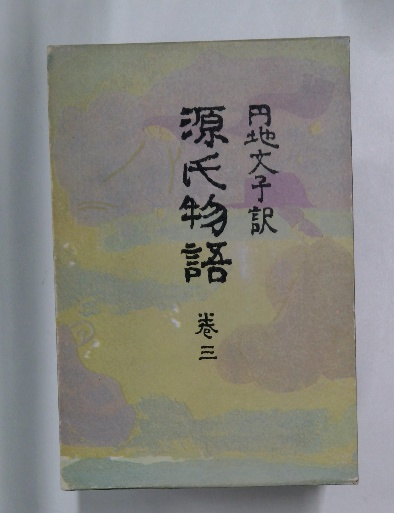 円地文子訳
源氏物語
巻三